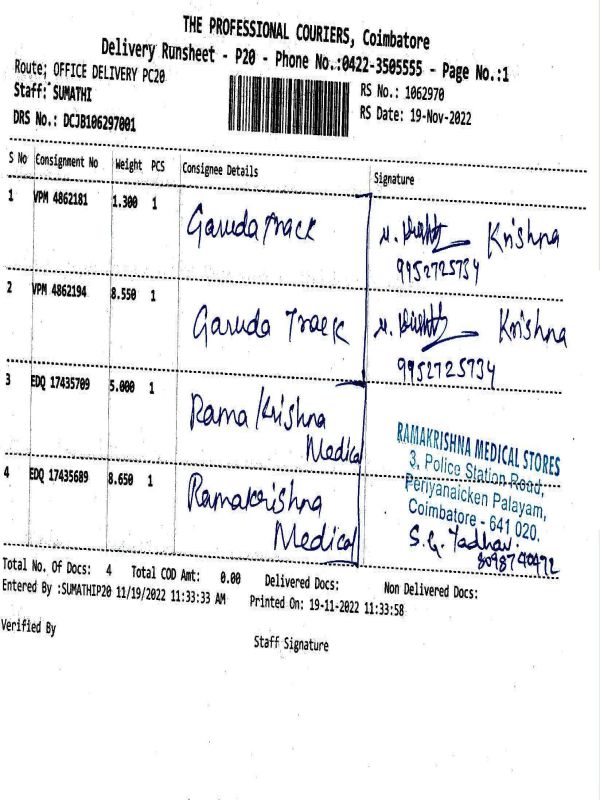 THE PROFESSIONAL COURIERS, Coimbatore
Delivery Runsheet - P20 - Phone No.:0422-3505555 - Page No.:1
Route: OFFICE DELIVERY PC20
Staff: SUMATHI
RS No.: 1062970
DRS No.: DCJB106297001
RS Date: 19-Nov-2022
S No Consignment No Weight PCS Consignee Details Signature
1 VPM 4862181 1.300 1 Garuda Track Krishna
9952725734
2 VPM 4862194 8.550 1 Garuda Track Krishna
9952725734
3 EDQ 17435709 5.000 1 Rama Krishna
Medical
RAMAKRISHNA MEDICAL STORES
3, Police Station Road,
Periyanaicken Palayam,
Coimbatore - 641 020.
4 EDQ 17435689 8.650 1 Ramakrishna
Medical
S.G. Yadhav.
Total No. Of Docs: 4 Total COD Amt: 0.00 Delivered Docs: Non Delivered Docs:
Entered By :SUMATHIP20 11/19/2022 11:33:33 AM Printed On: 19-11-2022 11:33:58
Verified By
Staff Signature